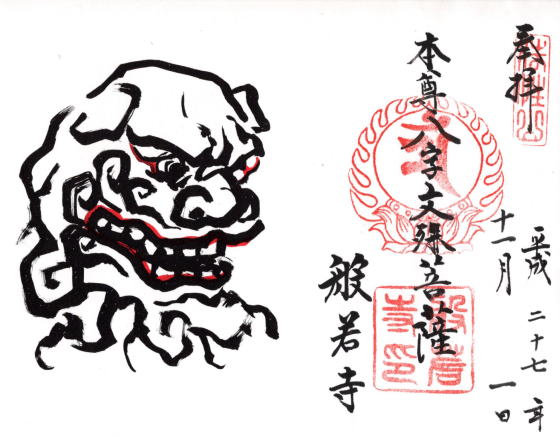 奉拝
平成二十七年
十一月一日
本尊八字文殊菩薩
般若寺
般若寺印